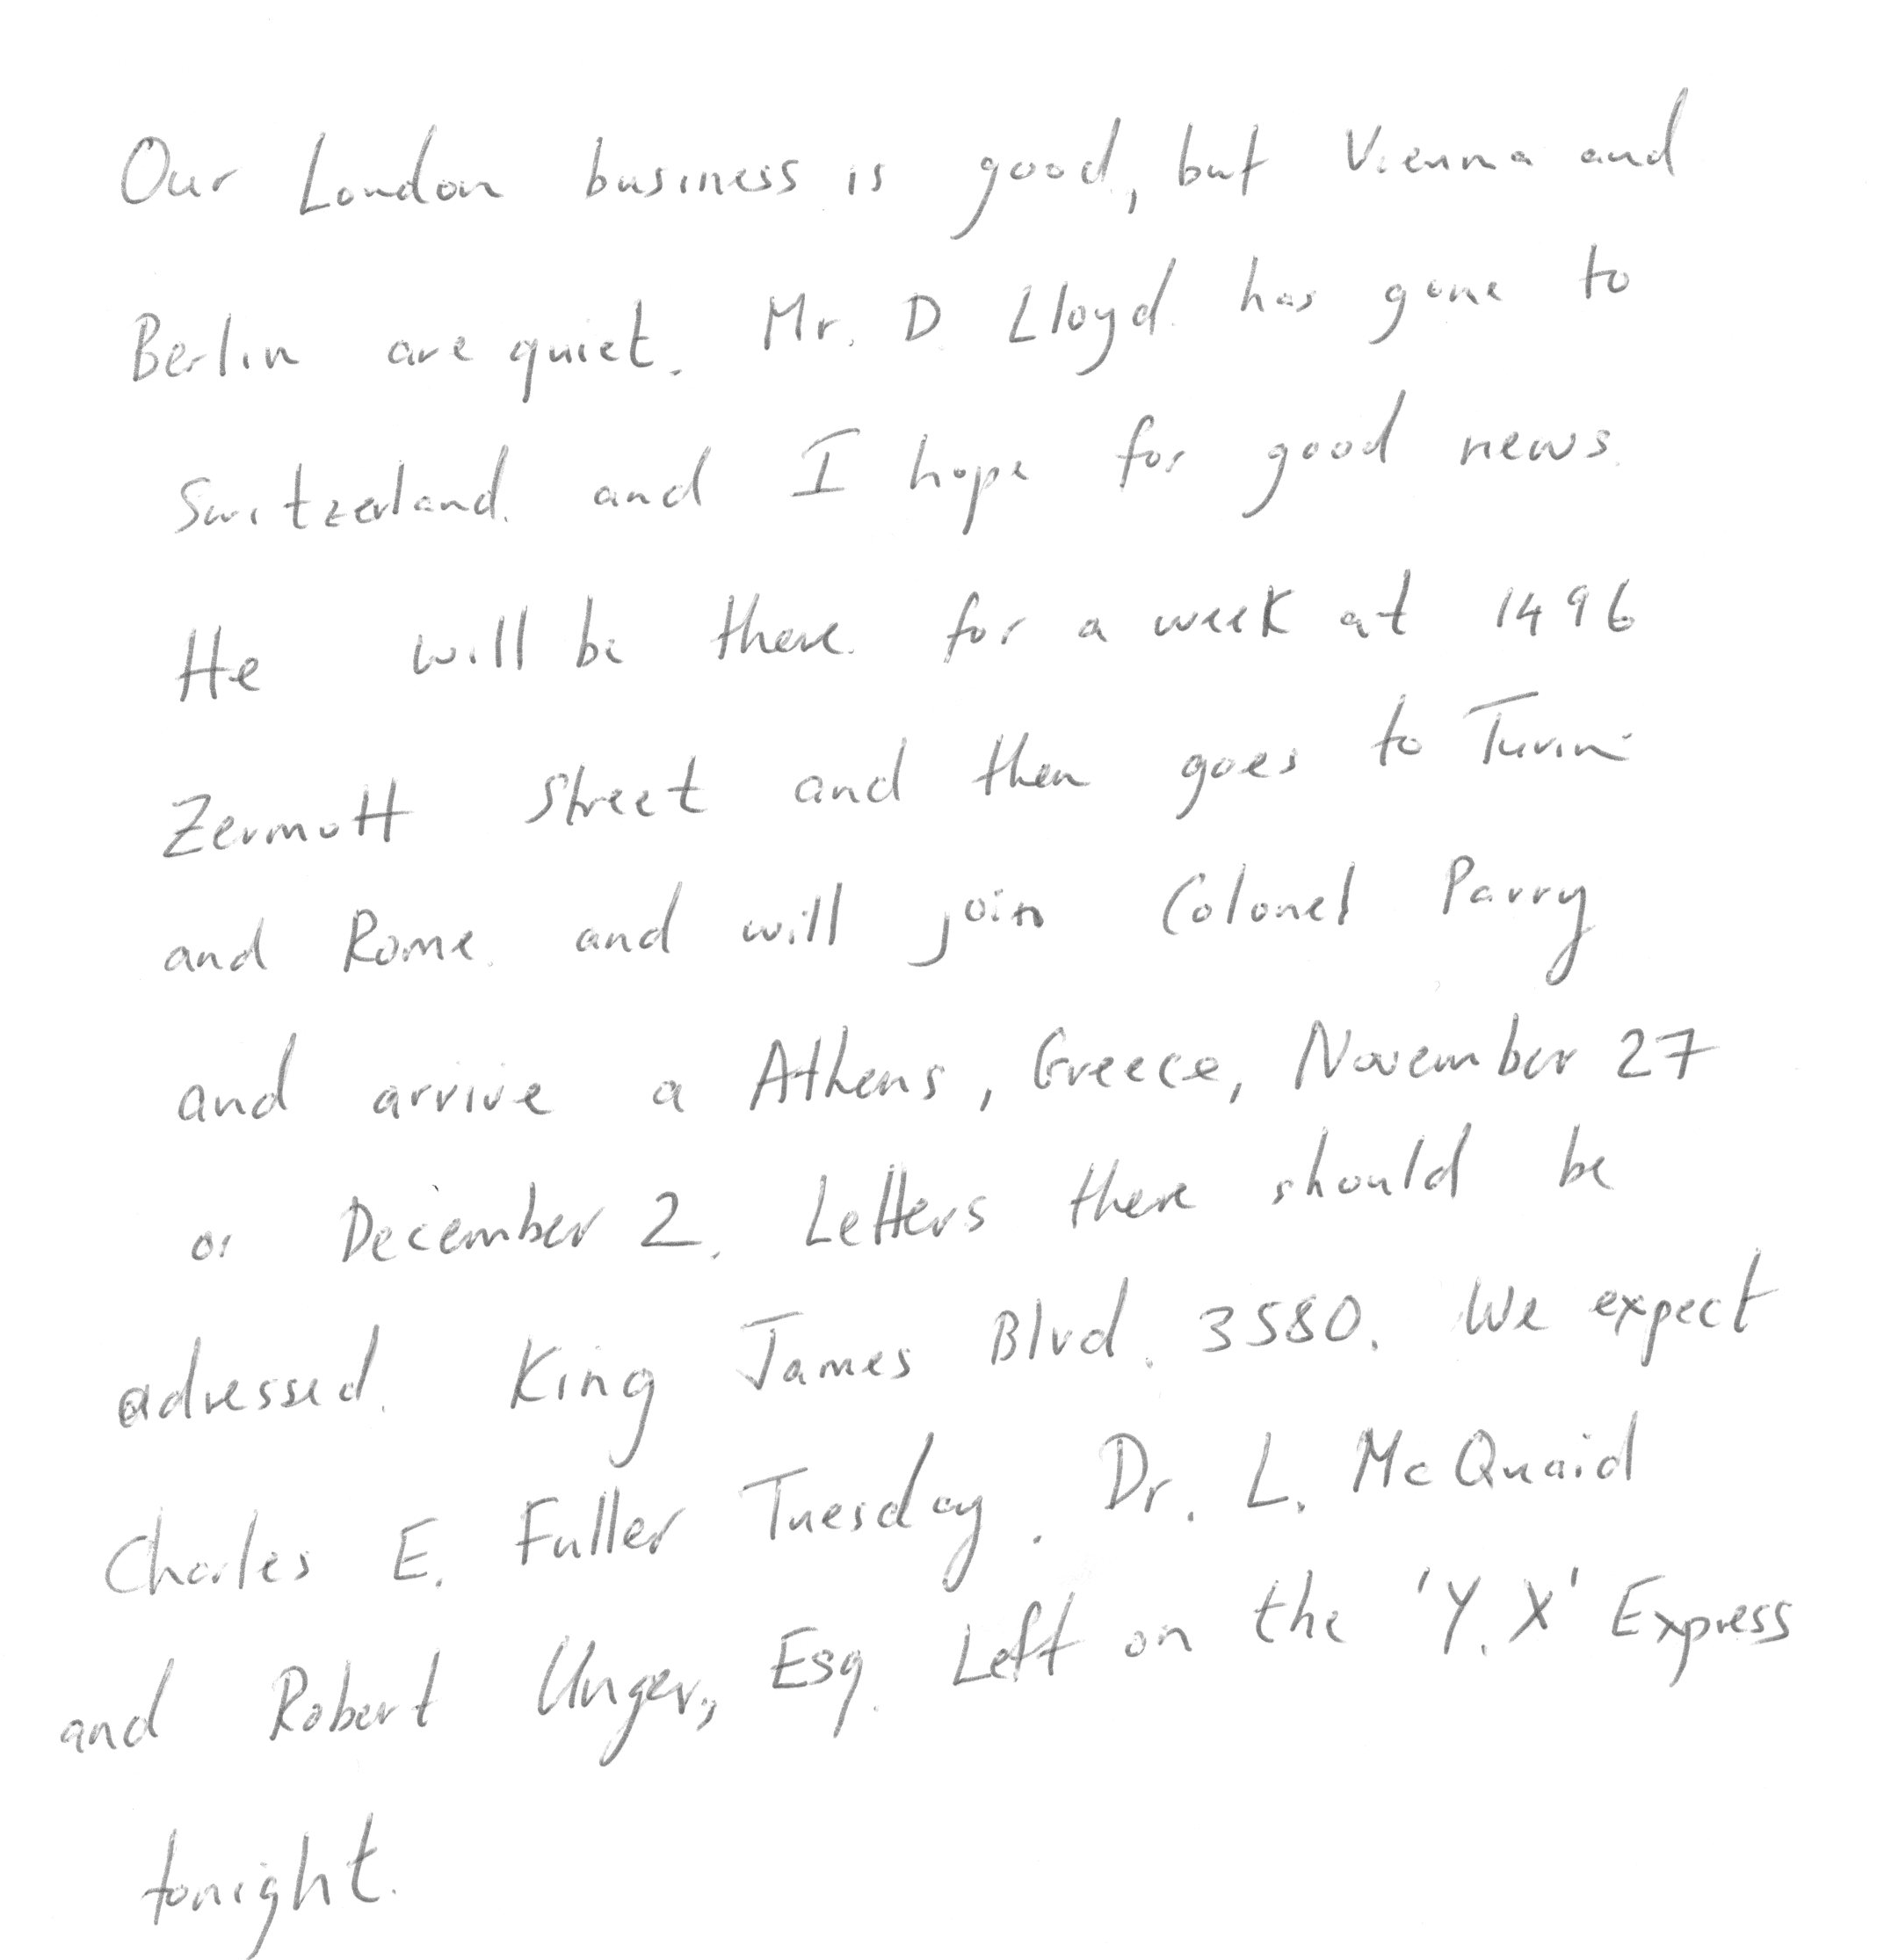 Our London business is good, but Vienna and
Berlin are quiet. Mr. D Lloyd has gone to
Switzerland and I hope for good news.
He will be there for a week at 1496
Zermott Street and then goes to Turin
and Rome and will join Colonel Parry
and arrive a Athens, Greece, November 27
or December 2. Letters there should be
adressed King James Blvd. 3580. We expect
Charles E. Fuller Tuesday. Dr. L. McQuaid
and Robert Unger, Esq. Left on the 'Y.X' Express
tonight.